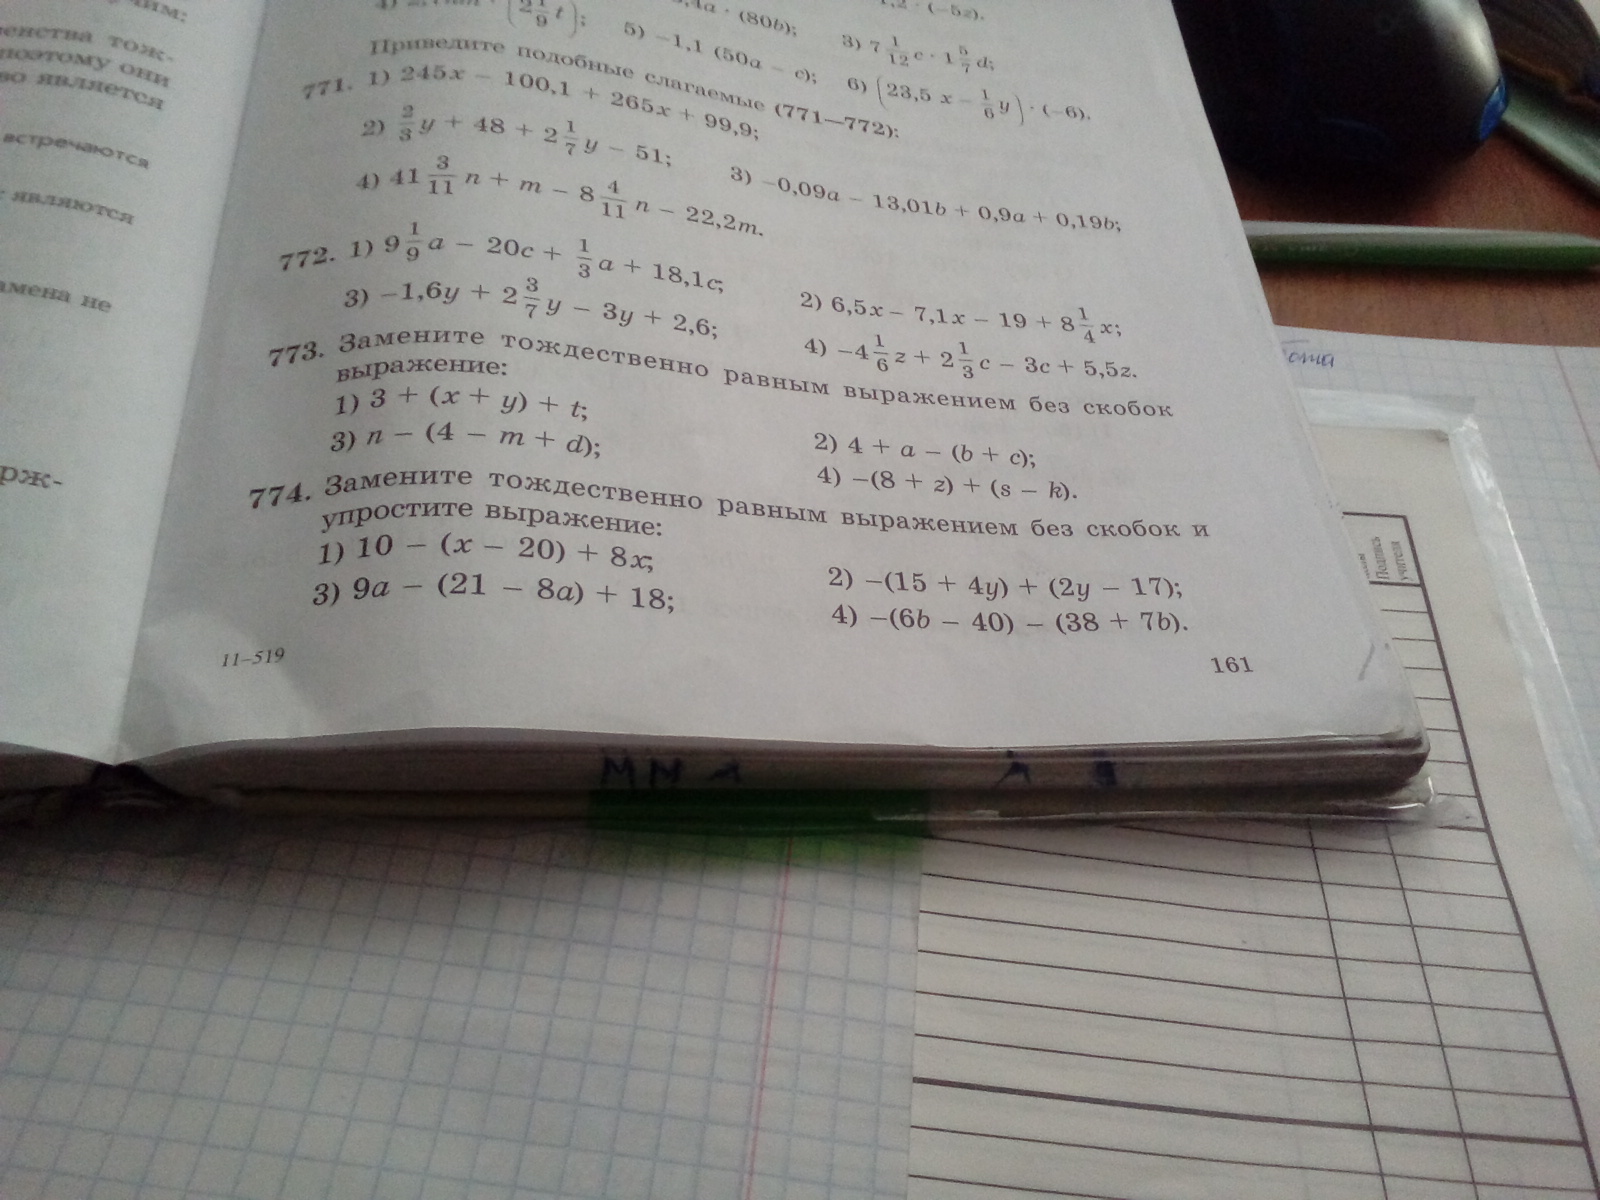 енства тож-
поэтому они
во является
встречаются
являются
амена не
рж-
5) −1,1 (50a − c);
3) 7 1/12 c · 1 5/7 d;
6) (23,5 x − 1/6 y) · (−6).
Приведите подобные слагаемые (771—772):
771. 1) 245x − 100,1 + 265x + 99,9;
2) 2/3 y + 48 + 2 1/7 y − 51;
3) −0,09a − 13,01b + 0,9a + 0,19b;
4) 41 3/11 n + m − 8 4/11 n − 22,2m.
772. 1) 9 1/9 a − 20c + 1/3 a + 18,1c;
2) 6,5x − 7,1x − 19 + 8 1/4 x;
3) −1,6y + 2 3/7 y − 3y + 2,6;
4) −4 1/6 z + 2 1/3 c − 3c + 5,5z.
773. Замените тождественно равным выражением без скобок
выражение:
1) 3 + (x + y) + t;
2) 4 + a − (b + c);
3) n − (4 − m + d);
4) −(8 + z) + (s − k).
774. Замените тождественно равным выражением без скобок и
упростите выражение:
1) 10 − (x − 20) + 8x;
2) −(15 + 4y) + (2y − 17);
3) 9a − (21 − 8a) + 18;
4) −(6b − 40) − (38 + 7b).
11–519
161
Подпись
учителя